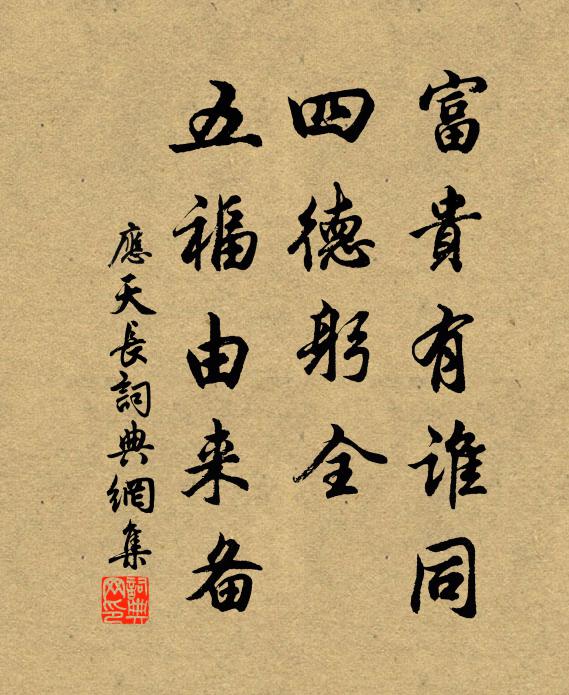 富貴有誰同
四德躬全
五福由来备
應天長詞典網集
詞典网印